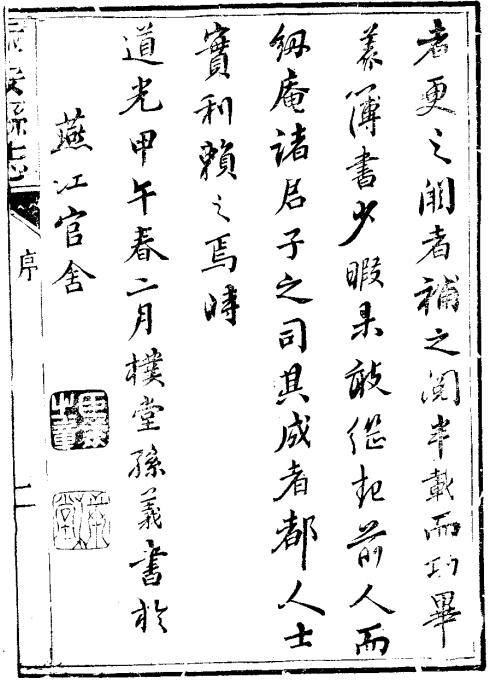 者更之闕者補之閱半載而功畢
義簿書少暇敢前人而
紉庵諸君子之司其成者都人士
實利賴之焉時
道光甲午春二月樸堂孫義書於
燕江官舍
永安縣志
序
二